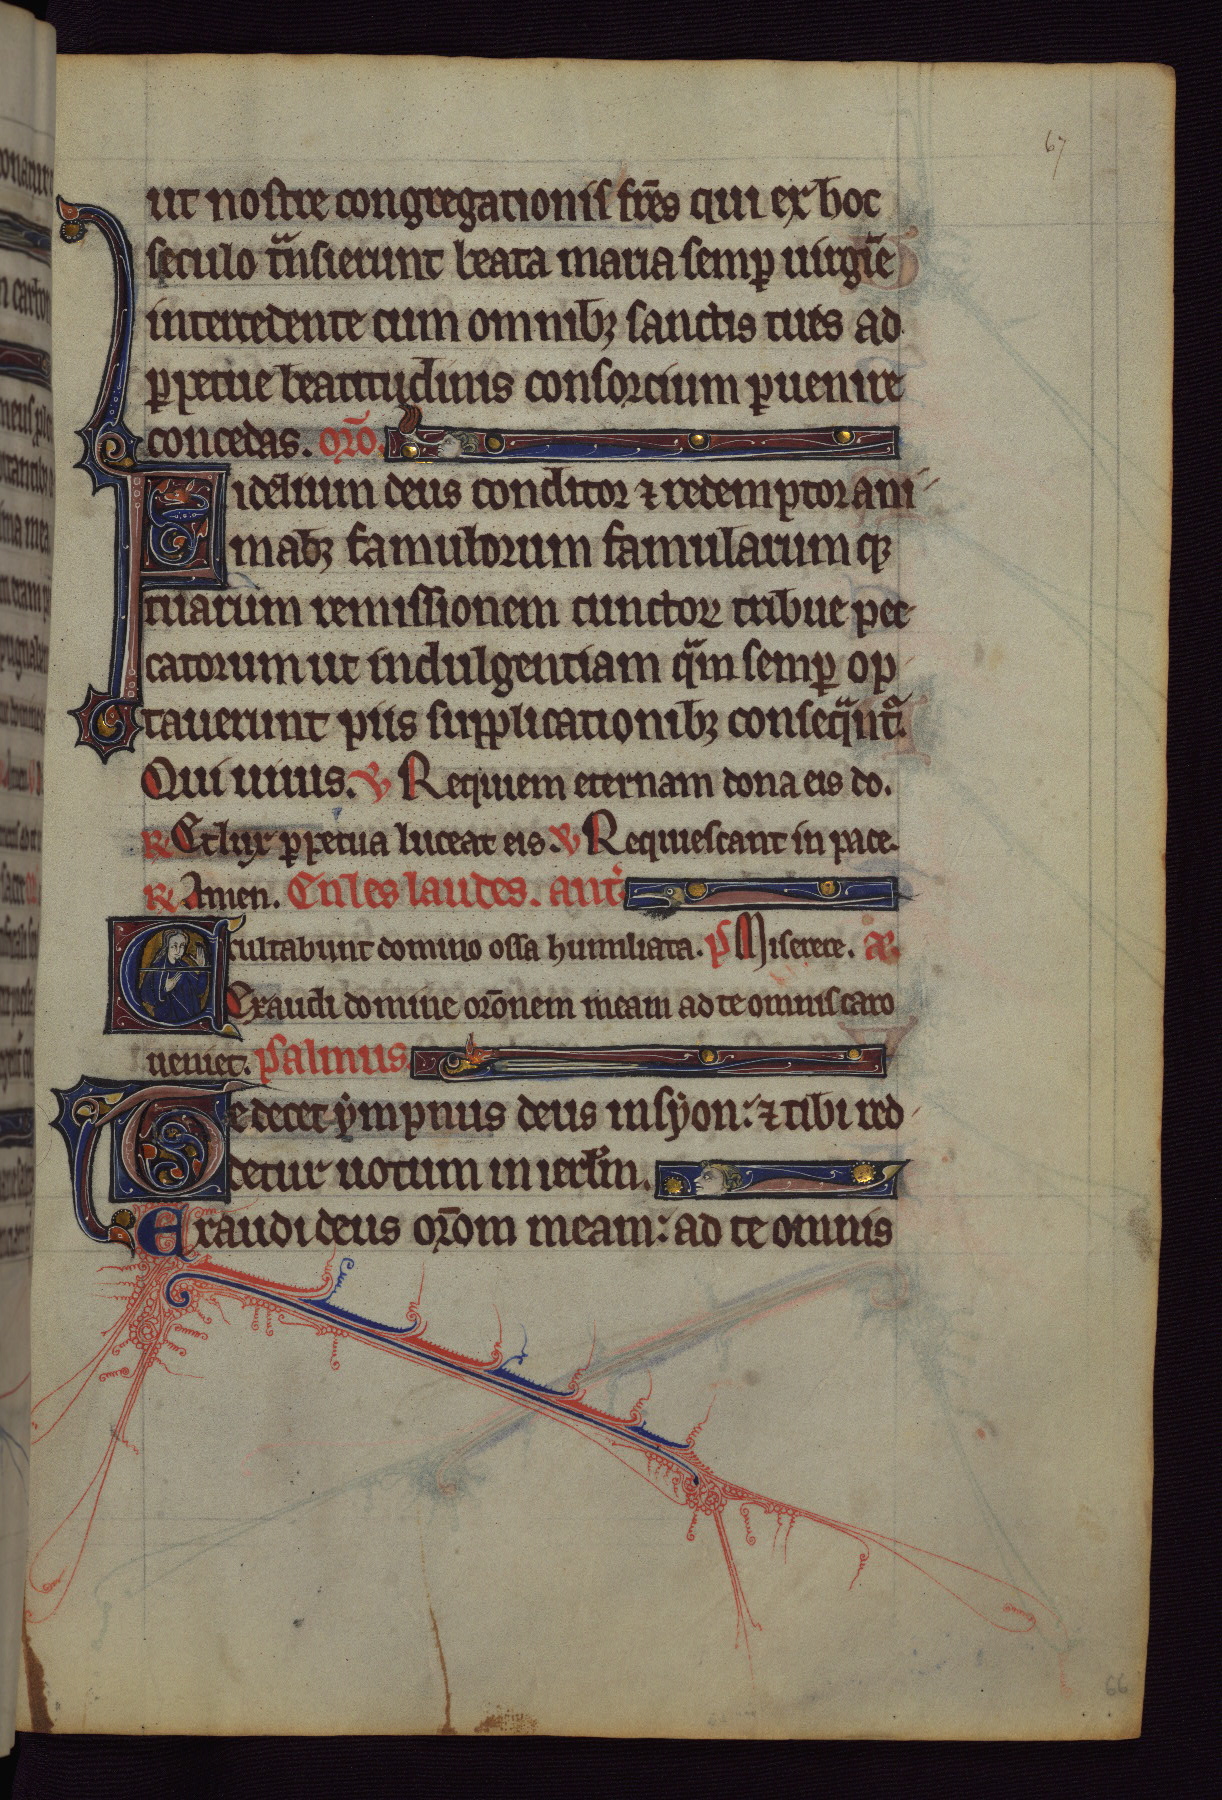 67
ut nostre congregationis fr̄es qui ex hoc
seculo tͣnsierunt beata maria semꝑ uirgīe
intercedente cum omnibꝫ sanctis tuis ad
ꝑpetue beatitudinis consorcium ꝑuenire
concedas. orō.
Fidelium deus conditor ⁊ redemptor ani
mabꝫ famulorum famularum qꝫ
tuarum remissionem cunctoꝝ tribue pec
catorum ut indulgentiam qͣm semꝑ op
tauerunt piis supplicationibꝫ conseqͣntᷣ.
Qui uiuis. ℣ Requiem eternam dona eis do.
℞ Et lux ꝑpetua luceat eis. ℣ Requiescant in pace.
℞ Amen. En les laudes. ant̉
Exultabunt domino ossa humiliata. p̄s Miserere. añ.
Exaudi domine orōnem meam ad te omnis caro
ueniet. psalmus.
Te decet ẏmpnus deus in sẏon: ⁊ tibi red
detur uotum in ierlm̄.
Exaudi deus orōm meam: ad te omnis
66